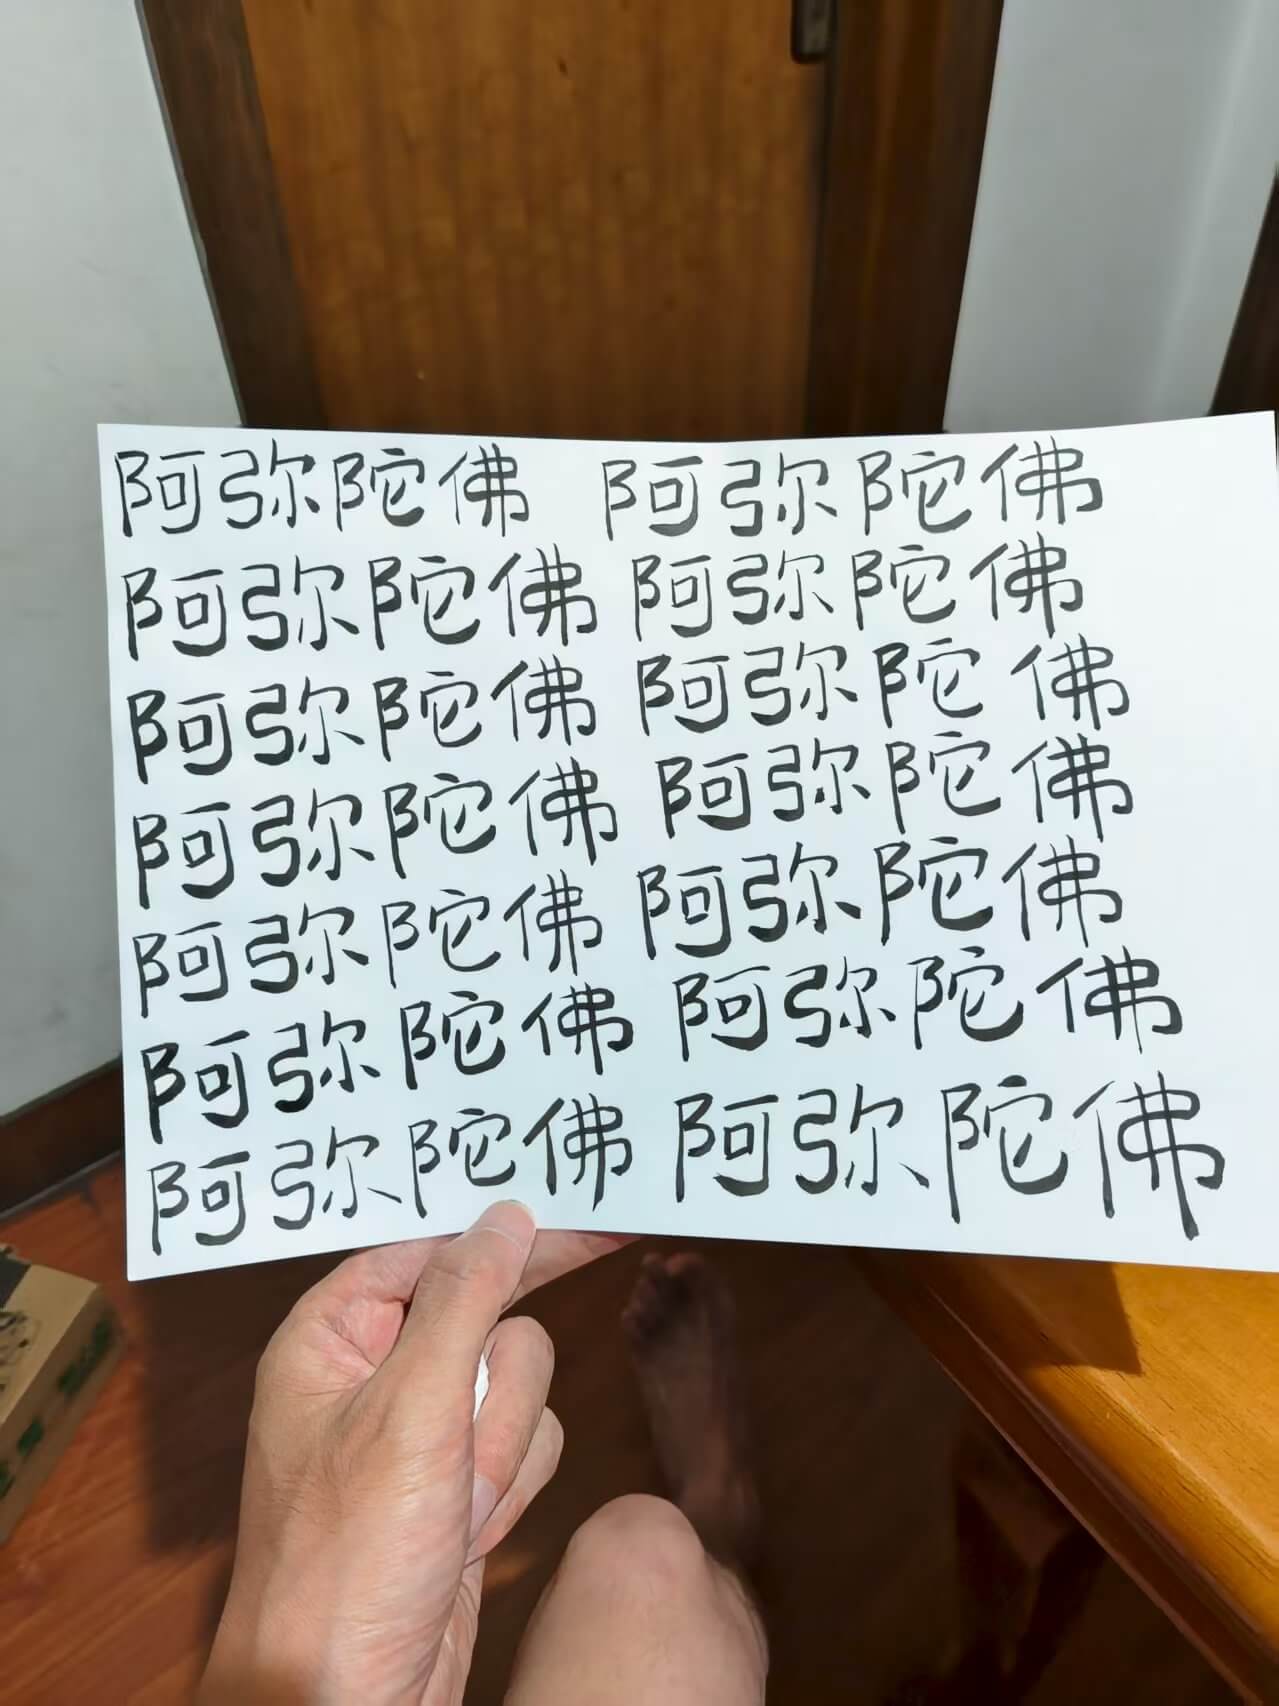 阿弥陀佛 阿弥陀佛
阿弥陀佛 阿弥陀佛
阿弥陀佛 阿弥陀佛
阿弥陀佛 阿弥陀佛
阿弥陀佛 阿弥陀佛
阿弥陀佛 阿弥陀佛
阿弥陀佛 阿弥陀佛